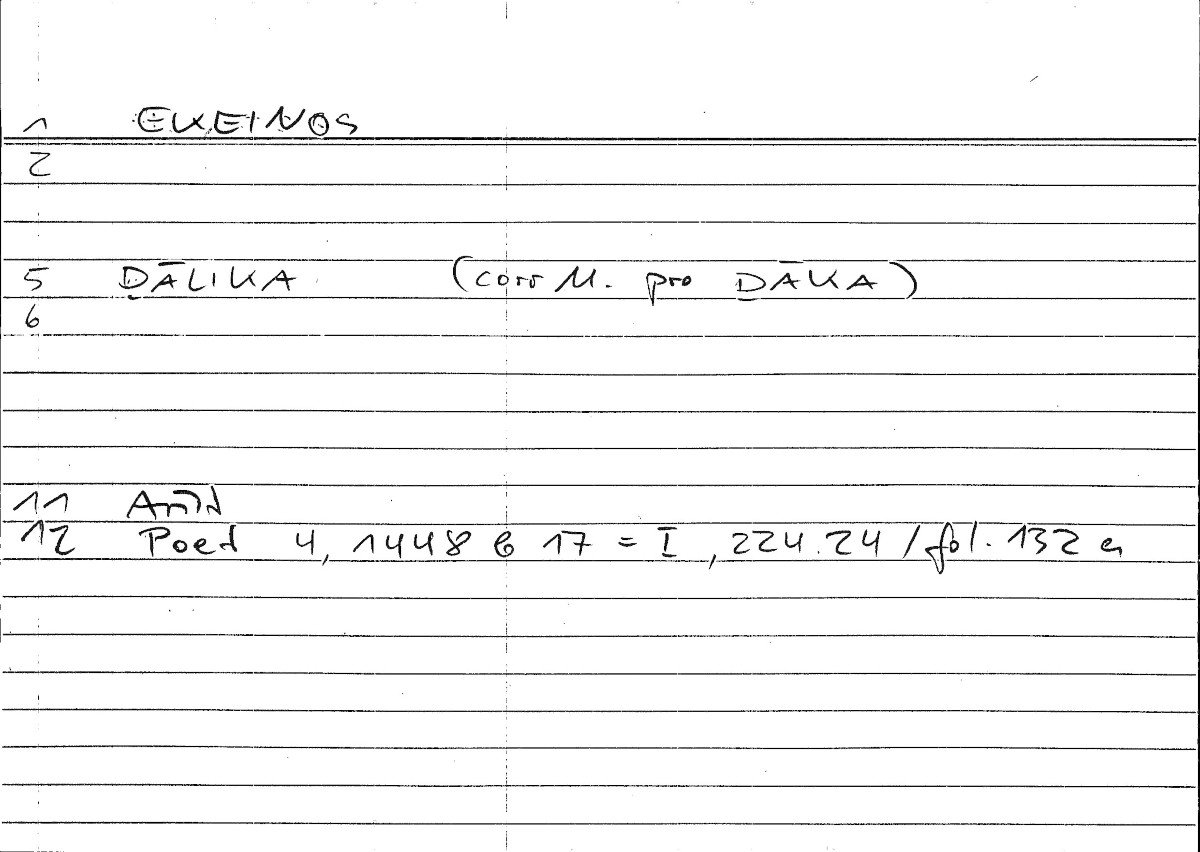 1 EKEINOS
2
5 ḎĀLIKA (corr M. pro ḎĀKA)
6
11 Arist
12 Poet 4, 1448 b 17 = I, 224.24 / fol. 132 a